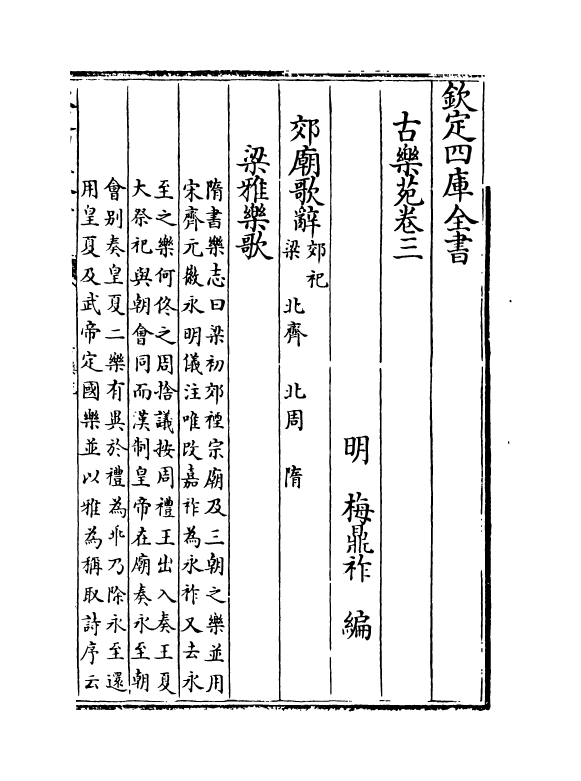 欽定四庫全書
古樂苑卷三
明　梅鼎祚　編
郊廟歌辭郊祀
梁　北齊　北周　隋
梁雅樂歌
隋書樂志曰梁初郊禋宗廟及三朝之樂並用
宋齊元徽永明儀注唯改嘉祚為永祚又去永
至之樂何佟之周捨議按周禮王出入奏王夏
大祭祀與朝會同而漢制皇帝在廟奏永至朝
會別奏皇夏二樂有異於禮為乖乃除永至還
用皇夏及武帝定國樂並以雅為稱取詩序云